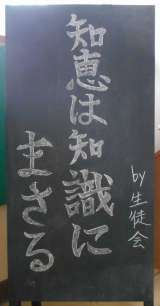 知恵は知識に
まさる
by生徒会